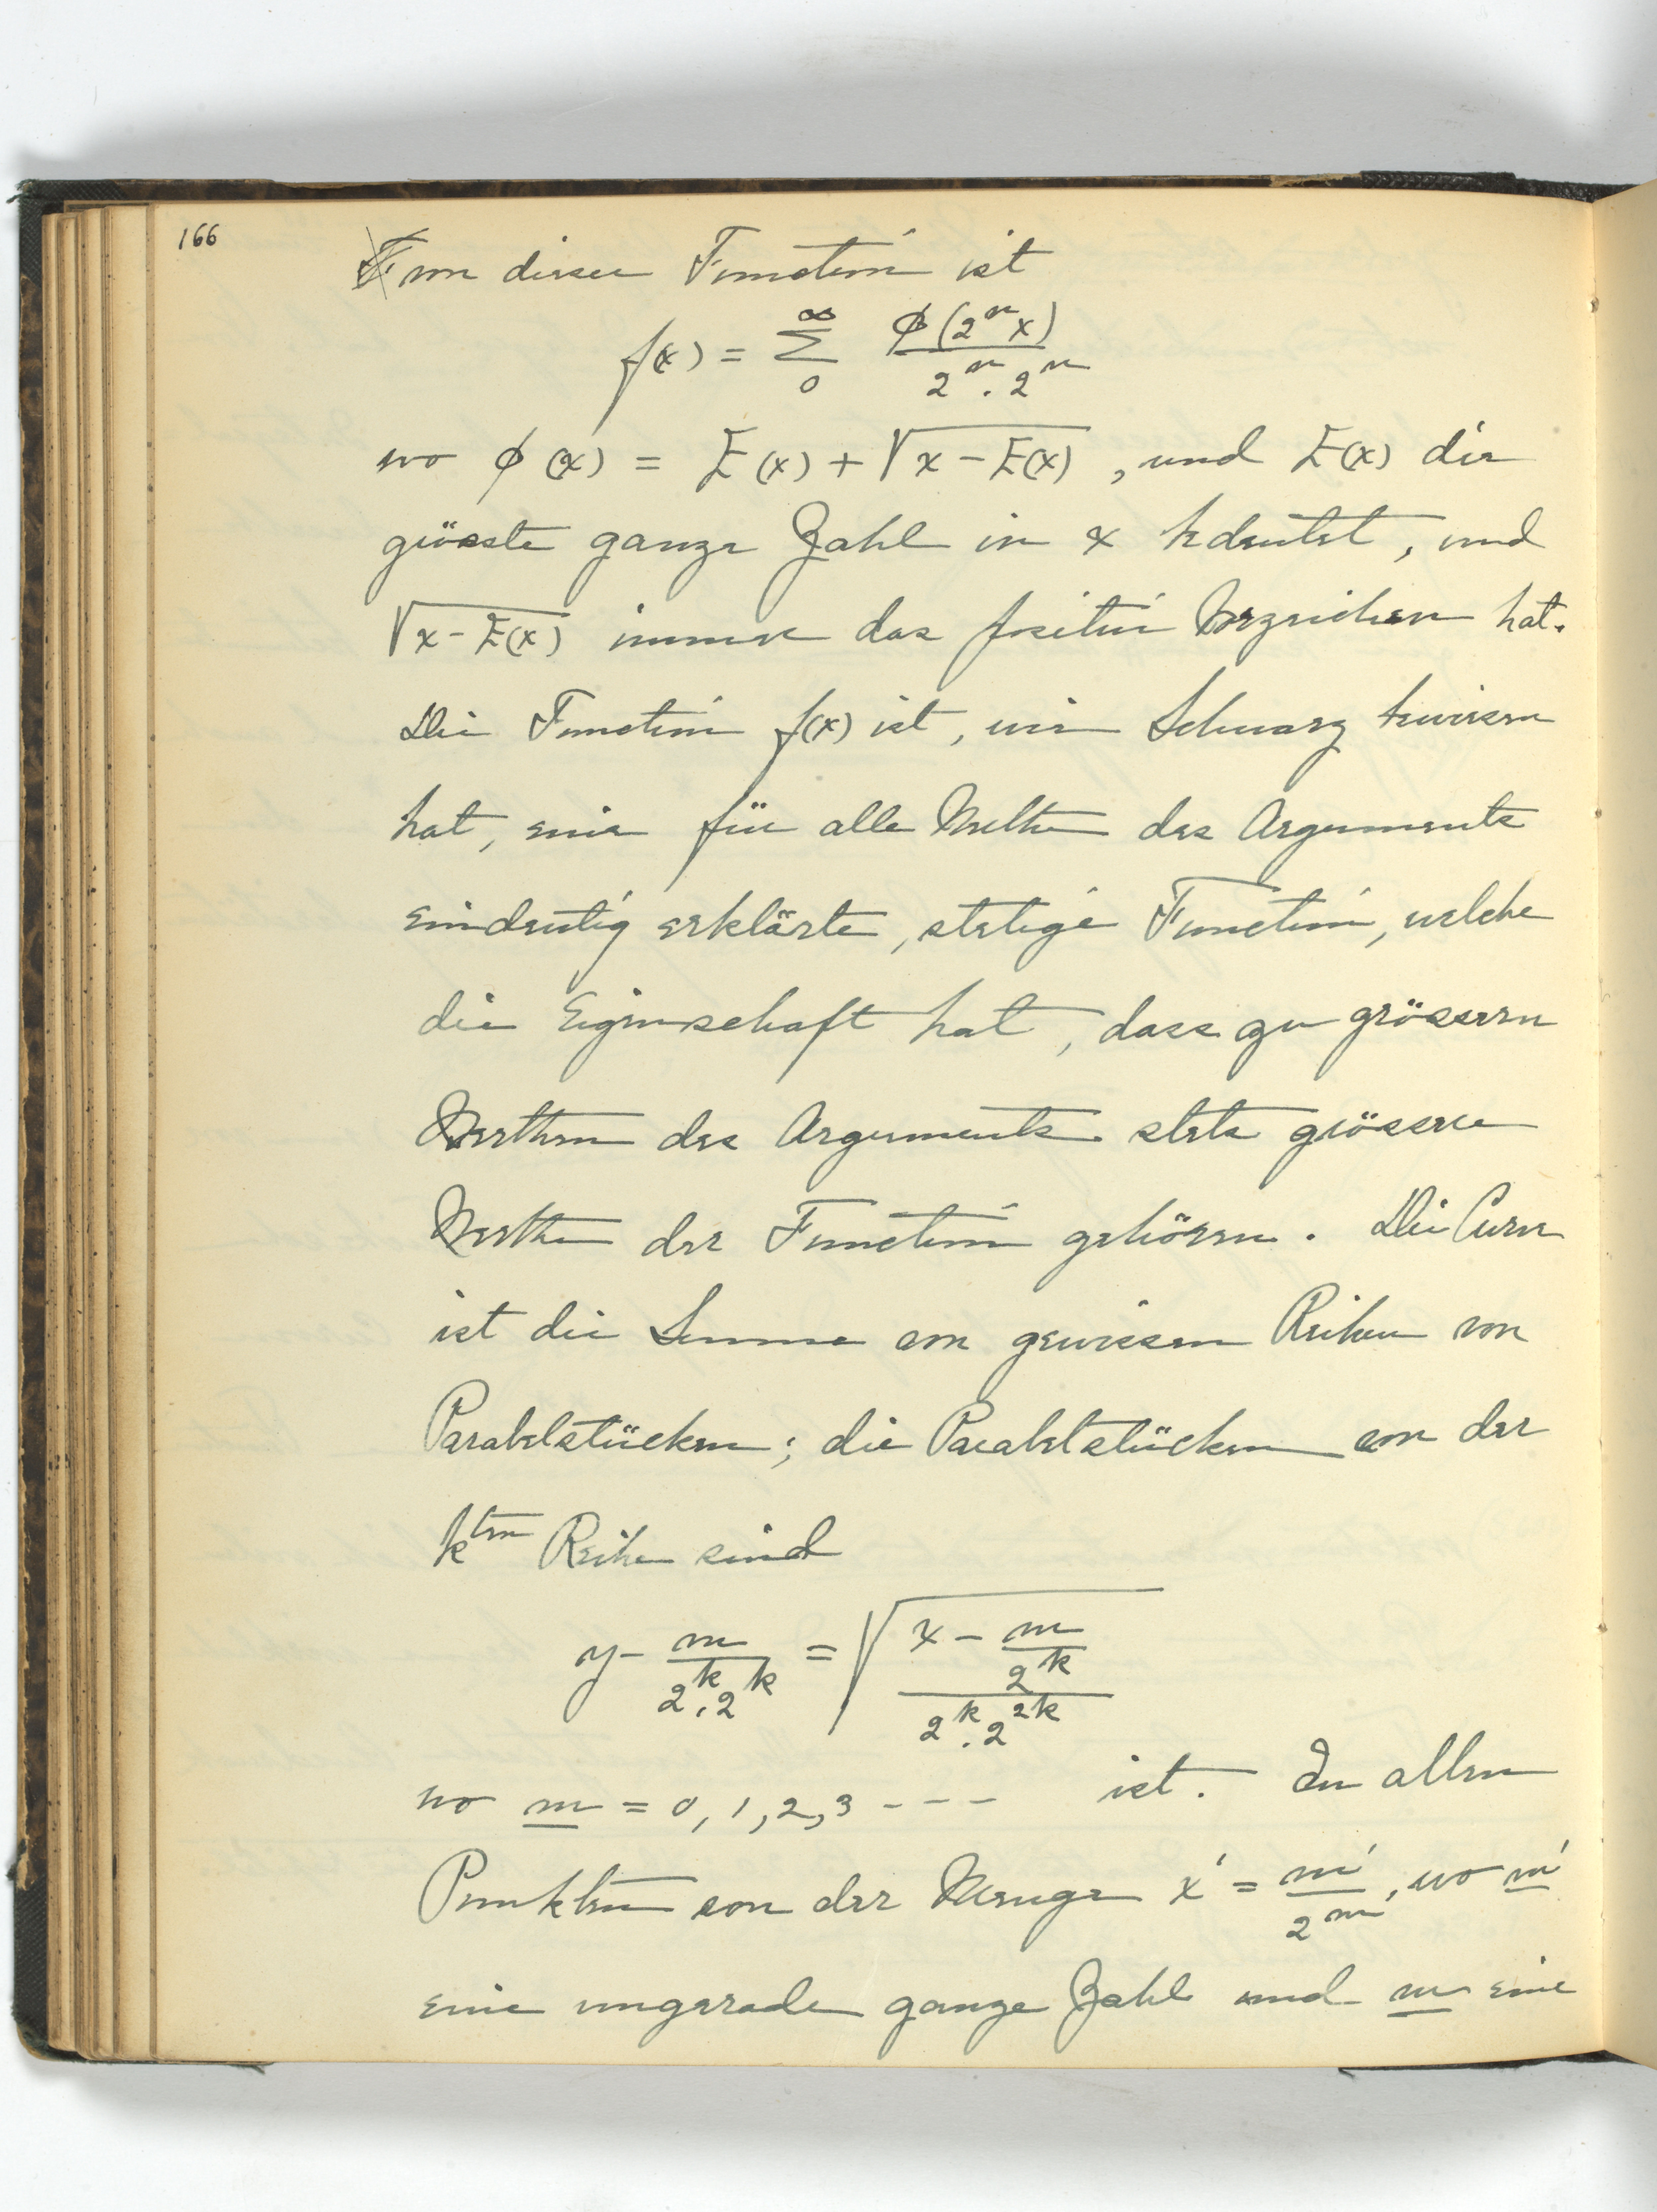 166
von dieser Function ist
f(x) = ∞ Σ 0 φ(2ⁿx) / 2ⁿ · 2ⁿ
wo φ(x) = E(x) + √(x − E(x)) , und E(x) die
grösste ganze Zahl in x bedeutet, und
√(x − E(x)) immer das positive Vorzeichen hat.
Die Function f(x) ist, wie Schwarz bewiesen
hat, eine für alle Werthe des Arguments
eindeutig erklärte, stetige Function, welche
die Eigenschaft hat, dass zu grösseren
Werthen des Arguments stets grössere
Werthe der Function gehören. Die Curve
ist die Summe von gewissen Reihen von
Parabelstücken; die Parabelstücken von der
kten Reihe sind
y − m / 2ᵏ·2ᵏ = √((x − m / 2ᵏ) / 2ᵏ·2²ᵏ)
wo m = 0, 1, 2, 3 - - - ist. In allen
Punkten von der Menge x' = m' / 2ᵐ, wo m'
eine ungerade ganze Zahl und m eine